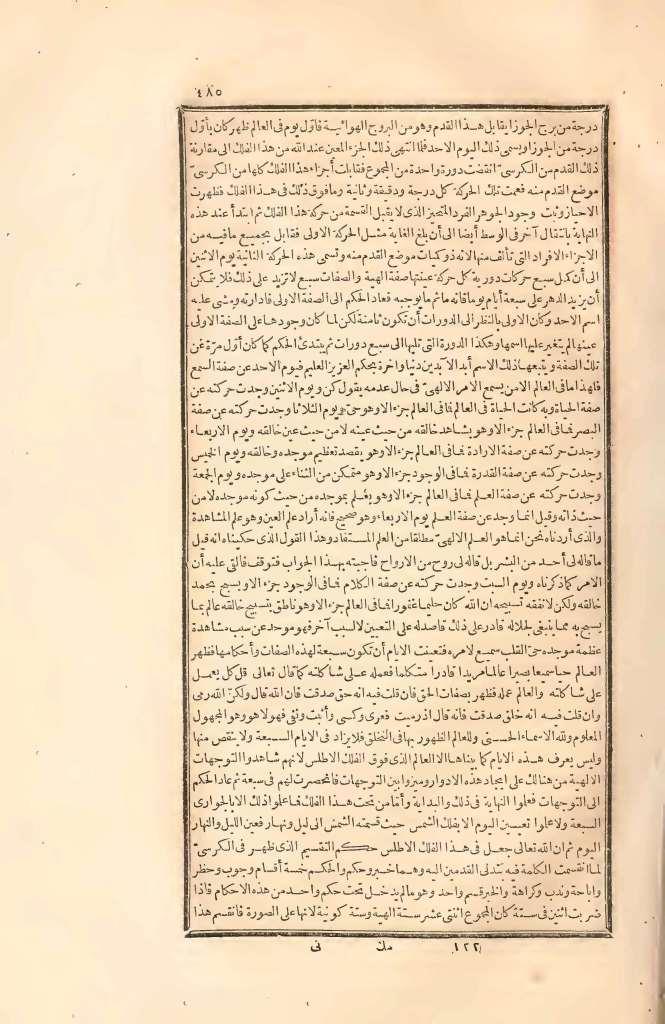 ٤٨٥
درجة من برج الجوزا يقابل هذا القدم وهو من البروج الهوائية فاول يوم فى العالم ظهر كان بأول
درجة من الجوزا ويسمى ذلك اليوم الاحد فلما انتهى ذلك الجزء المعين عند الله من هذا الفلك الى مقارنة
ذلك القدم من الكرسىّ انقضت دورة واحدة من المجموع فقابلت أجزاء هذا الفلك كلها من الكرسىّ
موضع القدم منه فعمت تلك الحركة كل درجة ودقيقة وثانية وما فوق ذلك فى هذا الفلك فظهرت
الاحياز وثبت وجود الجوهر الفرد المتحيز الذى لا يقبل القسمة من حركة هذا الفلك ثم ابتدأ عند هذه
النهاية بانتقال آخر فى الوسط أيضا الى أن بلغ الغاية مثل الحركة الاولى فقابل بجميع ما فيه من
الاجزاء الافراد التى تألف منها لانه ذو كميات موضع القدم منه وتسمى هذه الحركة الثانية يوم الاثنين
الى أن كمل سبع حركات دورية كل حركة عينتها صفة الهية والصفات سبع لا تزيد على ذلك فلا يتمكن
أن يزيد الدهر على سبعة أيام يوما فانه ما ثم ما يوجبه فعاد الحكم الى الصفة الاولى فادارته ومشى عليه
اسم الاحد وكان الاولى بالنظر الى الدورات أن تكون ثامنة لكن لما كان وجودها على الصفة الاولى
عينها لم يتغير عليها اسمها وهكذا الدورة التى تليها الى سبع دورات ثم يبتدئ الحكم كما كان أول مرّة عن
تلك الصفة ويتبعها ذلك الاسم أبد الآبدين دنيا وآخرة بحكم العزيز العليم فيوم الاحد عن صفة السمع
فلهذا ما فى العالم الا من يسمع الامر الالهىّ فى حال عدمه بقول كن ويوم الاثنين وجدت حركته عن
صفة الحياة وبه كانت الحياة فى العالم فما فى العالم جزء الا وهو حىّ ويوم الثلاثا وجدت حركته عن صفة
البصر فما فى العالم جزء الا وهو يشاهد خالقه من حيث عينه لا من حيث عين خالقه ويوم الاربعاء
وجدت حركته عن صفة الارادة فما فى العالم جزء الا وهو يقصد تعظيم موجده وخالقه ويوم الخميس
وجدت حركته عن صفة القدرة فما فى الوجود جزء الا وهو متمكن من الثناء على موجده ويوم الجمعة
وجدت حركته عن صفة العلم فما فى العالم جزء الا وهو يعلم بموجده من حيث كونه موجده لا من
حيث ذاته وقيل انما وجد عن صفة العلم يوم الاربعاء وهو صحيح فانه أراد علم العين وهو علم المشاهدة
والذى أردناه نحن انما هو العلم الالهىّ مطلقا من العلم المستفاد وهذا القول الذى حكيناه انه قيل
ما قاله لى أحد من البشر بل قاله لى روح من الارواح فاجبته بهذا الجواب فتوقف فالقى عليه أن
الامر كما ذكرناه ويوم السبت وجدت حركته عن صفة الكلام فما فى الوجود جزء الا ويسبح بحمد
خالقه ولكن لا نفقه تسبيحه ان الله كان حليما غفورا فما فى العالم جزء الا وهو ناطق بتسبيح خالقه عالم بما
يسبح به مما ينبغى لجلاله قادر على ذلك قاصد له على التعيين لا لسبب آخر فهو موجد عن سبب مشاهدة
عظمة موجده حىّ القلب سميع لامره فتعينت الايام أن تكون سبعة لهذه الصفات وأحكامها فظهر
العالم حيا سميعا بصيرا عالما مريدا قادرا متكلما فعمله على شاكلته كما قال تعالى قل كل يعمل
على شاكلته والعالم عمله فظهر بصفات الحق فان قلت فيه انه حق صدقت فان الله قال ولكنّ الله رمى
وان قلت فيه انه خلق صدقت فانه قال اذ رميت فعرى وكسى وأثبت ونفى فهو لا هو وهو المجهول
المعلوم ولله الاسماء الحسنى وللعالم الظهور بها فى التخلق فلا يزاد فى الايام السبعة ولا ينقص منها
وليس يعرف هذه الايام كما بيناها الا العالم الذى فوق الفلك الاطلس لانهم شاهدوا التوجهات
الالهية من هنالك على ايجاد هذه الادوار وميزوا بين التوجهات فانحصرت لهم فى سبعة ثم عاد الحكم
الى التوجهات فعلموا النهاية فى ذلك والبداية وأمّا من تحت هذا الفلك فما علموا ذلك الا بالجوارى
السبعة ولا علموا تعيين اليوم الا بفلك الشمس حيث قسمته الشمس الى ليل ونهار فعين الليل والنهار
اليوم ثم ان الله تعالى جعل فى هذا الفلك الاطلس حكم التقسيم الذى ظهر فى الكرسىّ
لما انقسمت الكلمة فيه بتدلى القدمين اليه وهما خبر وحكم والحكم خمسة أقسام وجوب وحظر
واباحة وندب وكراهة والخبر قسم واحد وهو ما لم يدخل تحت حكم واحد من هذه الاحكام فاذا
ضربت اثنين فى ستة كان المجموع اثنتى عشر ستة الهية وستة كونية لانها على الصورة فانقسم هذا
١٢٢ مك نى